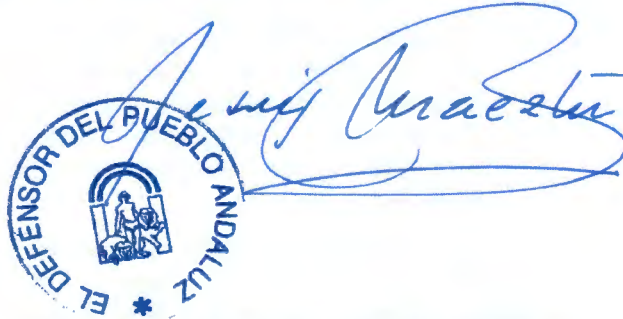 Jesús Maeztu
EL DEFENSOR DEL PUEBLO ANDALUZ *